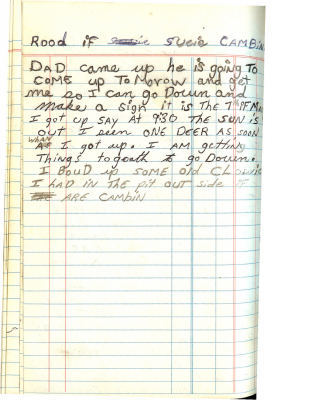 Rood if Sucie CAMBIN
DAD came up he is going To
come up To Morow and get
me so I can go Down and
make a sign it is THE
I got up SAY AT 930 THE SUN is
out I seen ONE DEER AS soon
WHAN I got up. I AM getting
Things to geath to go Down.
I BOUD up SOME old
I HAD IN THE pit out side
ARE CAMBIN